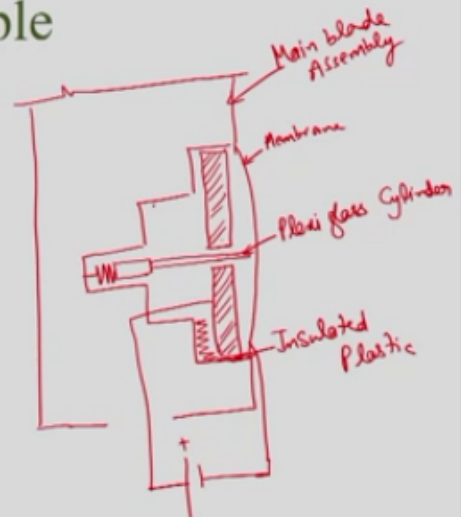 ple
Main blade
Assembly
Membrane
Plexi glass Cylinder
Insulated
Plastic
+